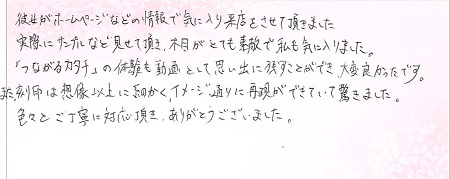 彼女がホームページなどの情報で気に入り来店をさせて頂きました
実際にサンプルなど見せて頂き、木目がとても素敵で私も気に入りました。
「つながるカタチ」の体験も動画として思い出に残すことができ大変良かったです。
また、刻印は想像以上に細かく、イメージ通りに再現ができていて驚きました。
色々とご丁寧に対応頂き、ありがとうございました。